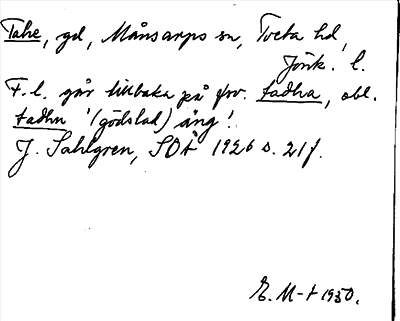 Tahe, gd, Månsarps sn, Tveta hd,
Jönk. l.
F.l. går tillbaka på fsv. tadha, obl.
tadhu '(gödslad) äng'.
J. Sahlgren, SOÅ 1926 s. 21 f.
E. M-t 1950.